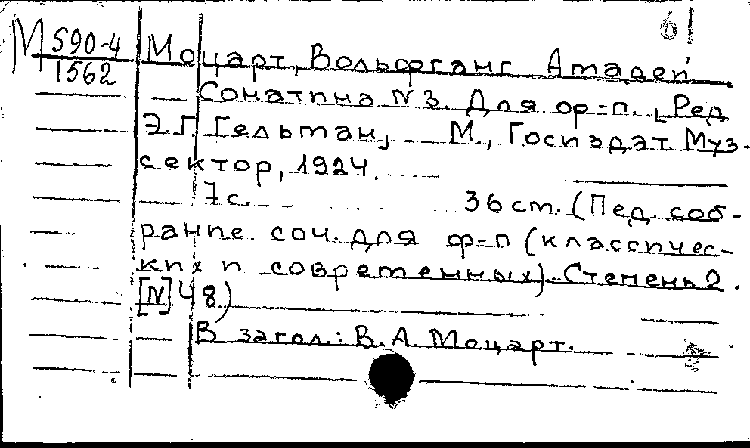 61
М 590-4
1562
Моцарт, Вольфганг Амадей
Сонатина N 3. Для ф-п. [Ред
Э. Г. Гельман, М., Госиздат Муз-
сектор, 1924.
7 с. 36 см. (Пед. соб-
рание. соч. для ф-п (классичес-
ких и современных). Степень 2.
[N] 48.)
В загол.: В. А. Моцарт.